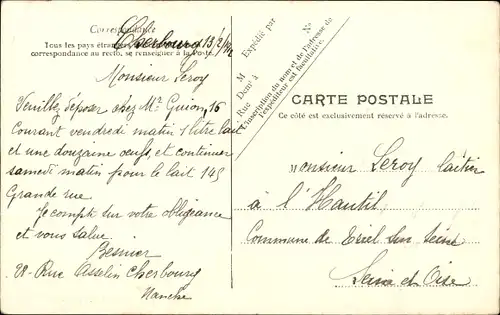 Correspondance
Cherbourg 13/2/
Tous les pays étran
correspondance au recto, se renseigner à la Poste.
Monsieur Leroy
Veuillez déposer chez Mr Guion, 16
Courant vendredi matin 1 litre lait
et une douzaine œufs, et continuer
samedi matin pour le lait 145
Grande rue
Je compte sur votre obligeance
et vous salue.
Besnier
28 - Rue Asselin Cherbourg
Manche
M
Expédié par
Demt à
Rue
No
L'inscription du nom et de l'adresse de
l'expéditeur est facultative.
CARTE POSTALE
Ce côté est exclusivement réservé à l'adresse.
Monsieur Leroy laitier
à l'Hautil
Commune de Triel sur Seine
Seine et Oise